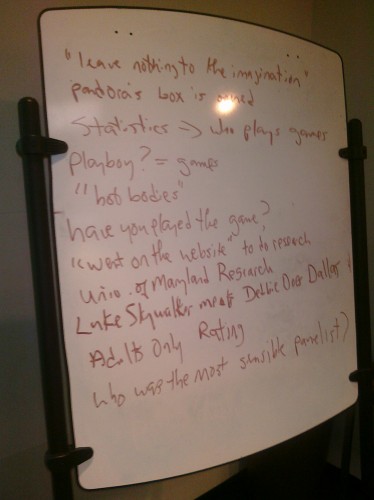 "leave nothing to the imagination"
pandora's box is opened
Statistics => who plays games
Playboy? = games
"hot bodies"
have you played the game?
"went on the website" to do research
Univ. of Maryland Research
Luke Skywalker meets Debbie Does Dallas
Adults Only Rating
who was the most sensible panelist?